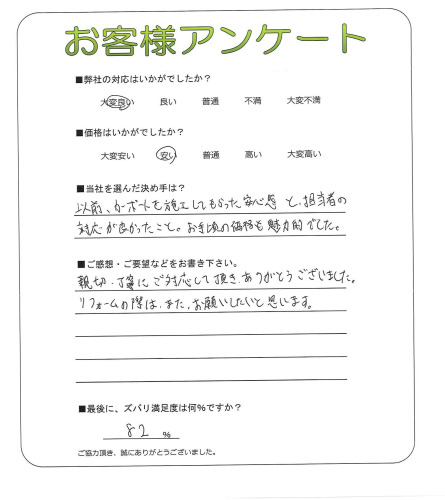 お客様アンケート
■弊社の対応はいかがでしたか?
大変良い 良い 普通 不満 大変不満
■価格はいかがでしたか?
大変安い 安い 普通 高い 大変高い
■当社を選んだ決め手は?
以前、カーポートを施工してもらった安心感と、担当者の
対応が良かったこと。お手頃の価格も魅力的でした。
■ご感想・ご要望などをお書き下さい。
親切・丁寧にご対応して頂き、ありがとうございました。
リフォームの際は、また、お願いしたいと思います。
■最後に、ズバリ満足度は何%ですか?
82 %
ご協力頂き、誠にありがとうございました。